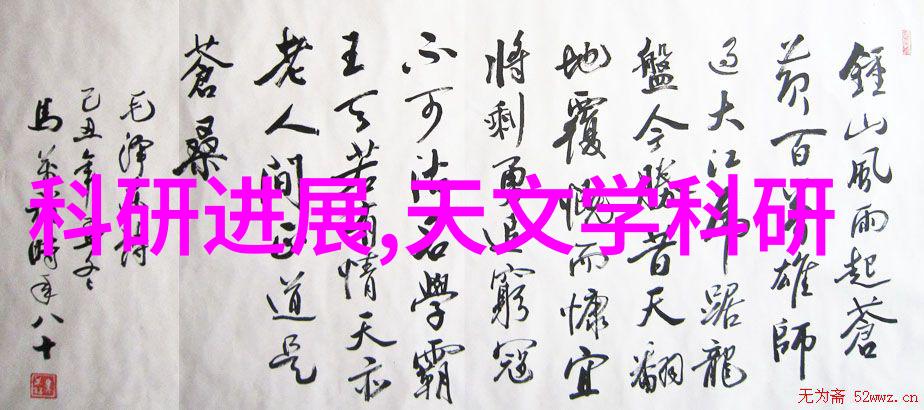 鍾山風雨起蒼
黄百萬雄師
過大江虎踞龍
盤今勝昔天翻
地覆慨而慷宜
將剩勇追窮寇
不可沽名學霸
王天若有情天亦
老人間正道是
蒼桑
毛澤東詩
己丑年冬
馬時年八十
科研进展,天文学科研
无为斋 52wwz.cn